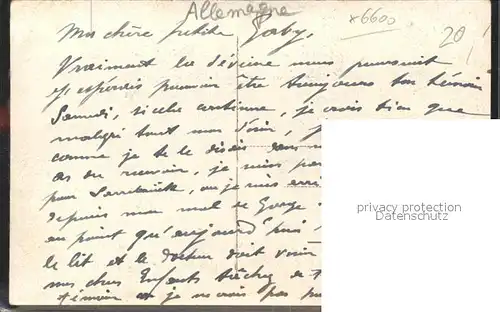 Allemagne
x6600
20
Ma chère petite Gaby,
Vraiment la déveine nous poursuit
et j'espérais pouvoir être toujours ton témoin
Samedi, si cela continue, je crois bien que
malgré tout mon désir, j
comme je te le disais dans
cas de revenir, je suis
pour Sarrebrück, où je suis
depuis mon mal de Gorge
au point qu'aujourd'hui
le lit et le docteur doit venir
mes chers Enfants tâchez de
témoin car je ne crois pas
privacy protection
Datenschutz